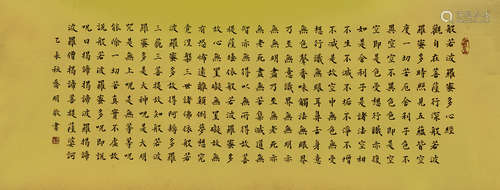 般若波羅蜜多心經
觀自在菩薩行深般若波
羅蜜多時照見五蘊皆空
度一切苦厄舍利子色不
異空空不異色色即是空
空即是色受想行識亦復
如是舍利子是諸法空相
不生不滅不垢不淨不增
不減是故空中無色無受
想行識無眼耳鼻舌身意
無色聲香味觸法無眼界
乃至無意識界無無明亦
無無明盡乃至無老死亦
無老死盡無苦集滅道無
智亦無得以無所得故菩
提薩埵依般若波羅蜜多
故心無罣礙無罣礙故無
有恐怖遠離顛倒夢想究
竟涅槃三世諸佛依般若
波羅蜜多故得阿耨多羅
三藐三菩提故知般若波
羅蜜多是大神呪是大明
呪是無上呪是無等等呪
能除一切苦真實不虛故
說般若波羅蜜多呪即說
呪曰揭諦揭諦波羅揭諦
波羅僧揭諦菩提薩婆訶
乙未秋喬明敬書